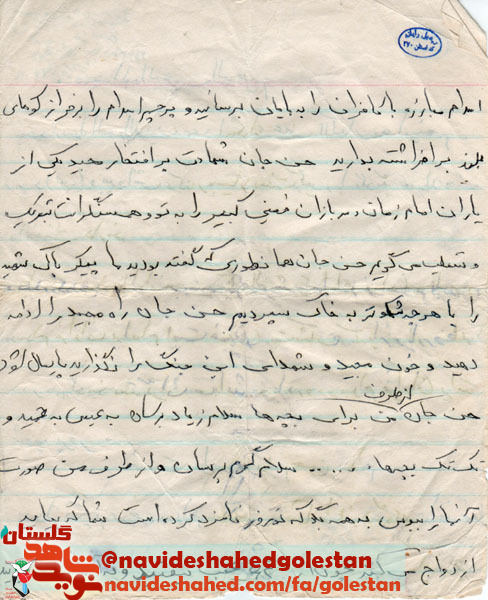 اسلام مبارزه با کافران را به پایان برسانید و پرچم اسلام را بر فراز کوههای
بلند برافراشته بدارید حسن جان شهادت پر افتخار مجید یکی از
یاران امام زمان و سربازان خمینی کبیر را به تو و همسنگرانت تبریک
و تسلیت می گویم حسن جان همانطوری که گفته بودید ما پیکر پاک شهید
را با هرچه شکوهتر به خاک سپردیم حسن جان راه مجید را ادامه
دهید و خون مجید و شهدای این جنگ را نگذارید پایمال شود
حسن جان از طرف من برای بچه ها سلام زیاد برسان به عیسی به حمید و
تک تک بچه ها و ..... سلام گرم برسان و از طرف من صورت
آنها را ببوس به همه بگو که نوروز نامزد کرده است شما که نباید
ازدواج
گلستان
نوید شاهد
@navideshahedgolestan
navideshahed.com/fa/golestan